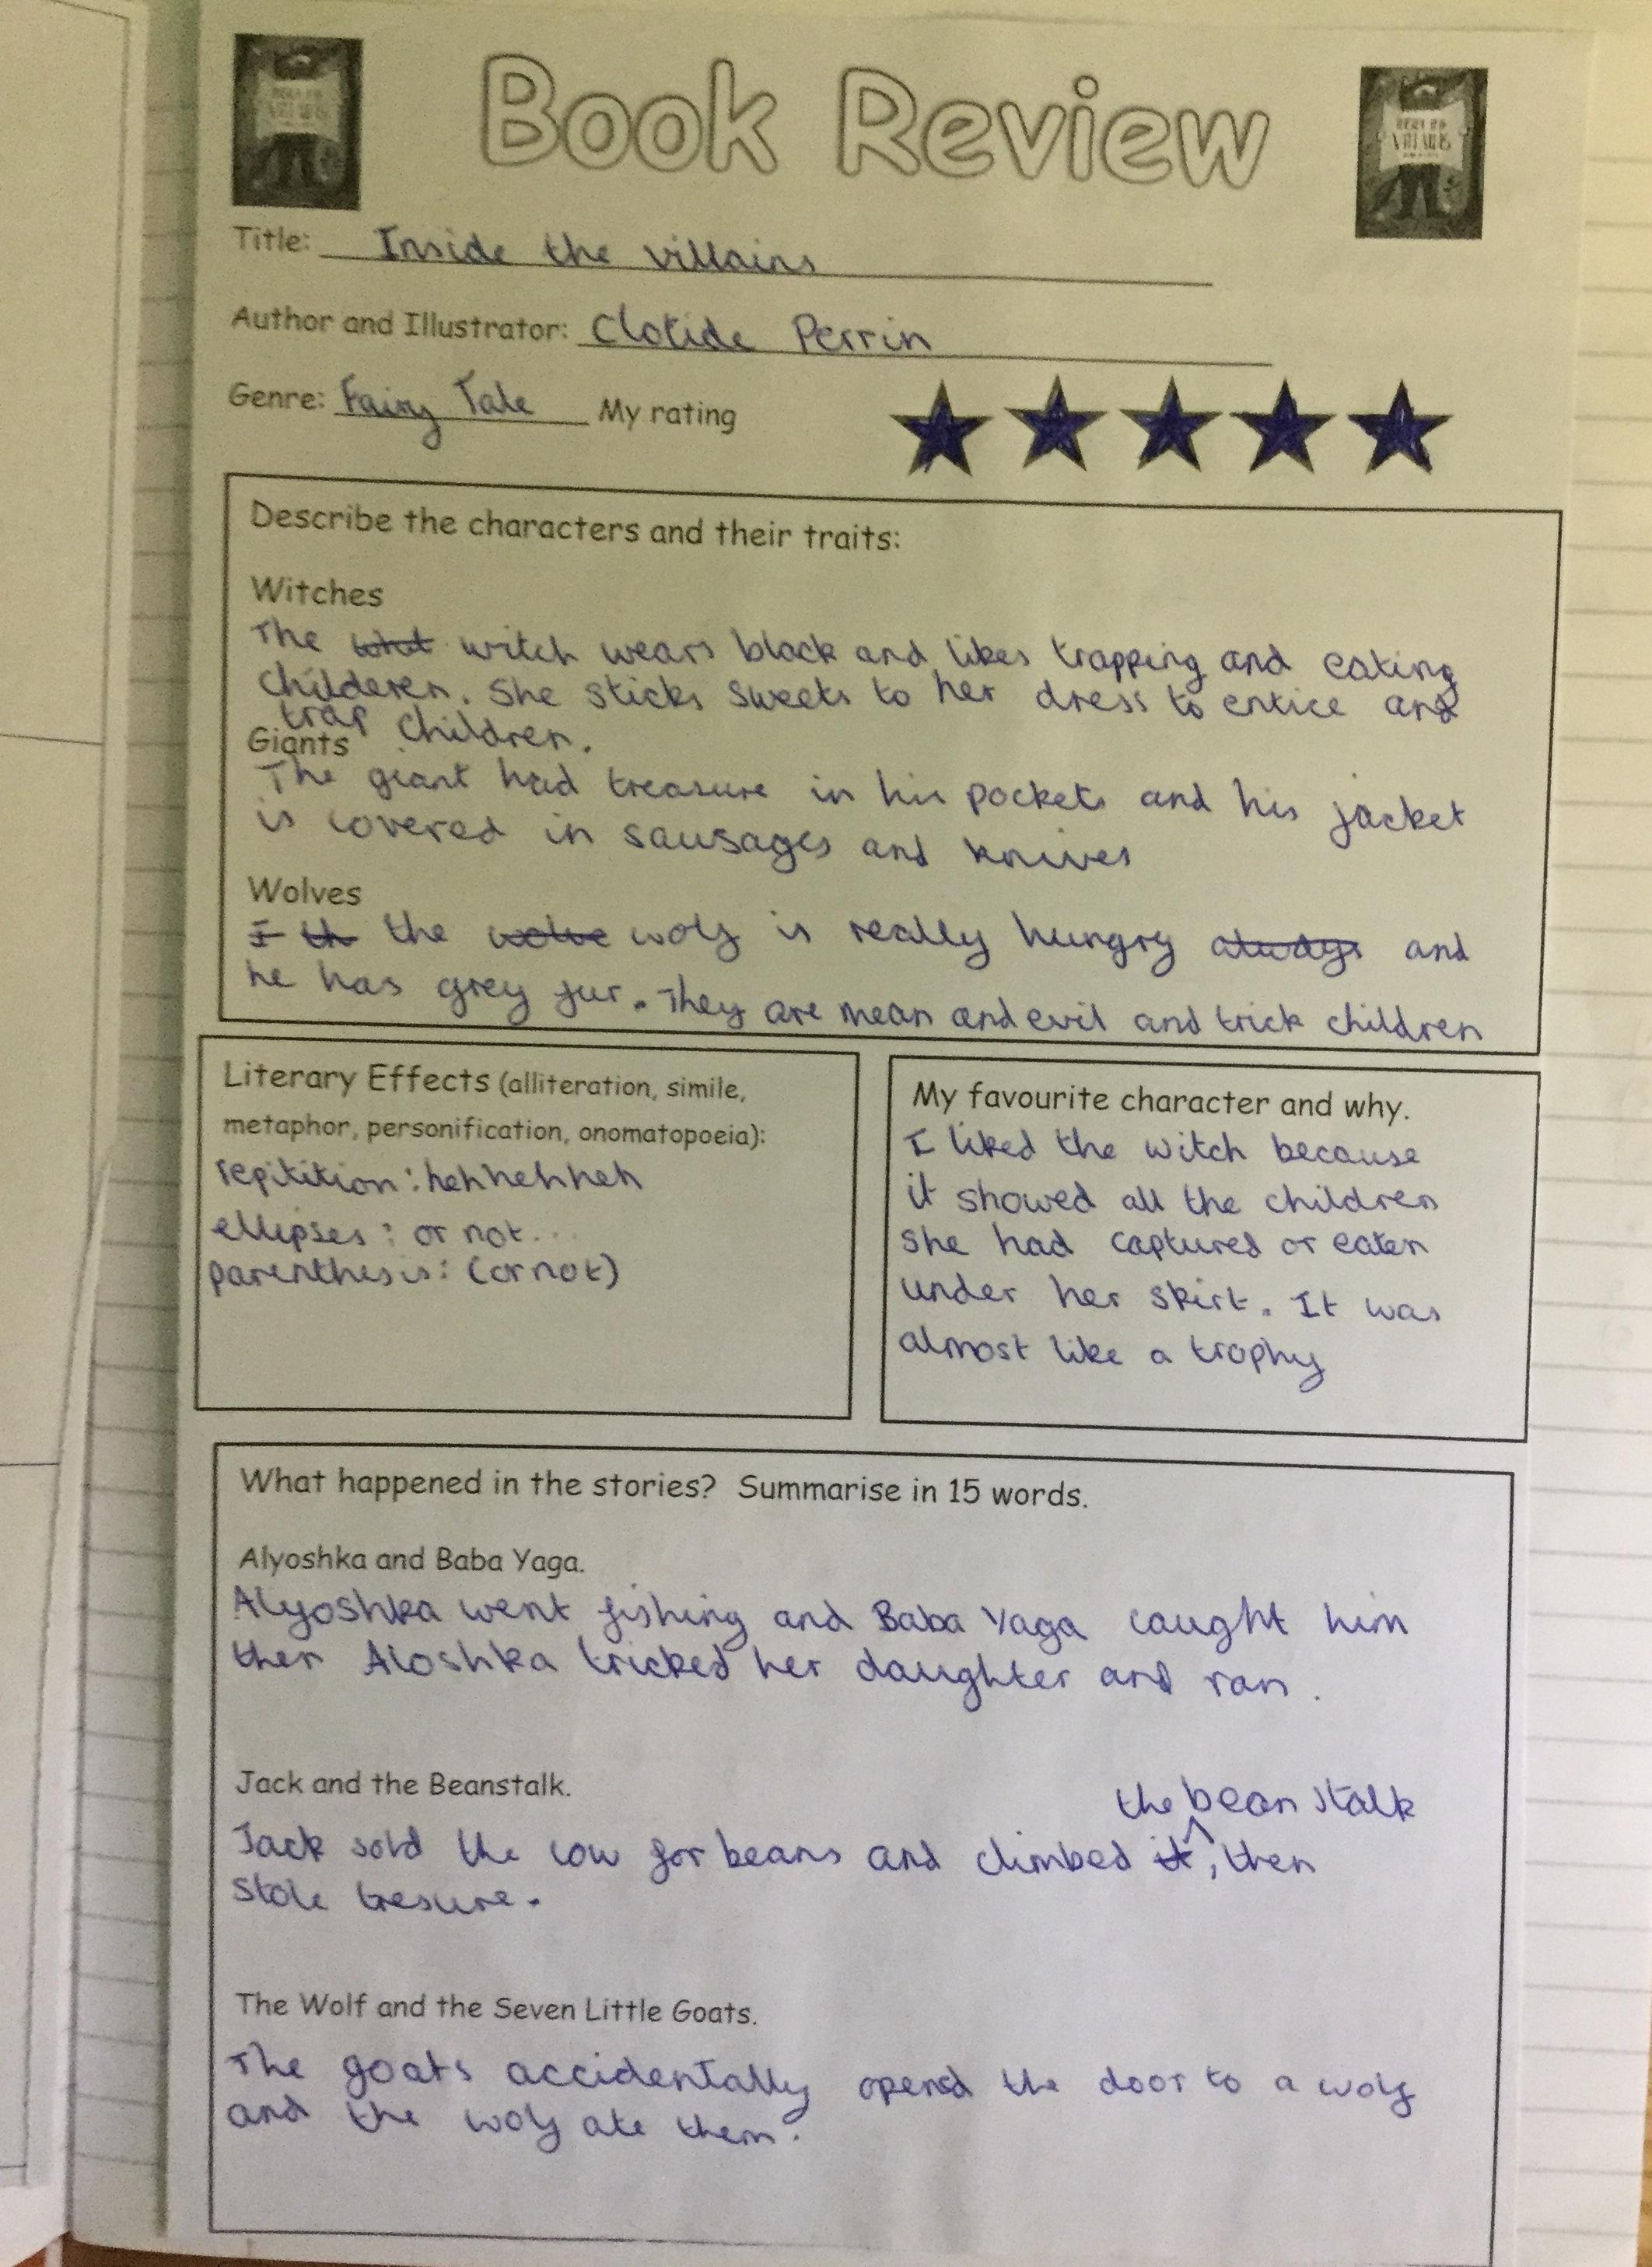 Book Review
Title: Inside the villains
Author and Illustrator: Clotide Perrin
Genre: Fairy Tale My rating
Describe the characters and their traits:
Witches
The witch wears black and likes trapping and eating
childeren. She sticks sweets to her dress to entice and
trap children.
Giants
The giant had treasure in his pockets and his jacket
is covered in sausages and knives
Wolves
I th the wolve wolf is really hungry always and
he has grey fur. They are mean and evil and trick children
Literary Effects (alliteration, simile,
metaphor, personification, onomatopoeia):
repitition: hehhehheh
ellipses: or not...
parenthesis: (or not)
My favourite character and why.
I liked the witch because
it showed all the children
she had captured or eaten
under her skirt. It was
almost like a trophy
What happened in the stories? Summarise in 15 words.
Alyoshka and Baba Yaga.
Alyoshka went fishing and Baba Yaga caught him
then Aloshka tricked her daughter and ran.
Jack and the Beanstalk.
the bean stalk
Jack sold the cow for beans and climbed it, then
stole tresure.
The Wolf and the Seven Little Goats.
The goats accidentally opened the door to a wolf
and the wolf ate them.